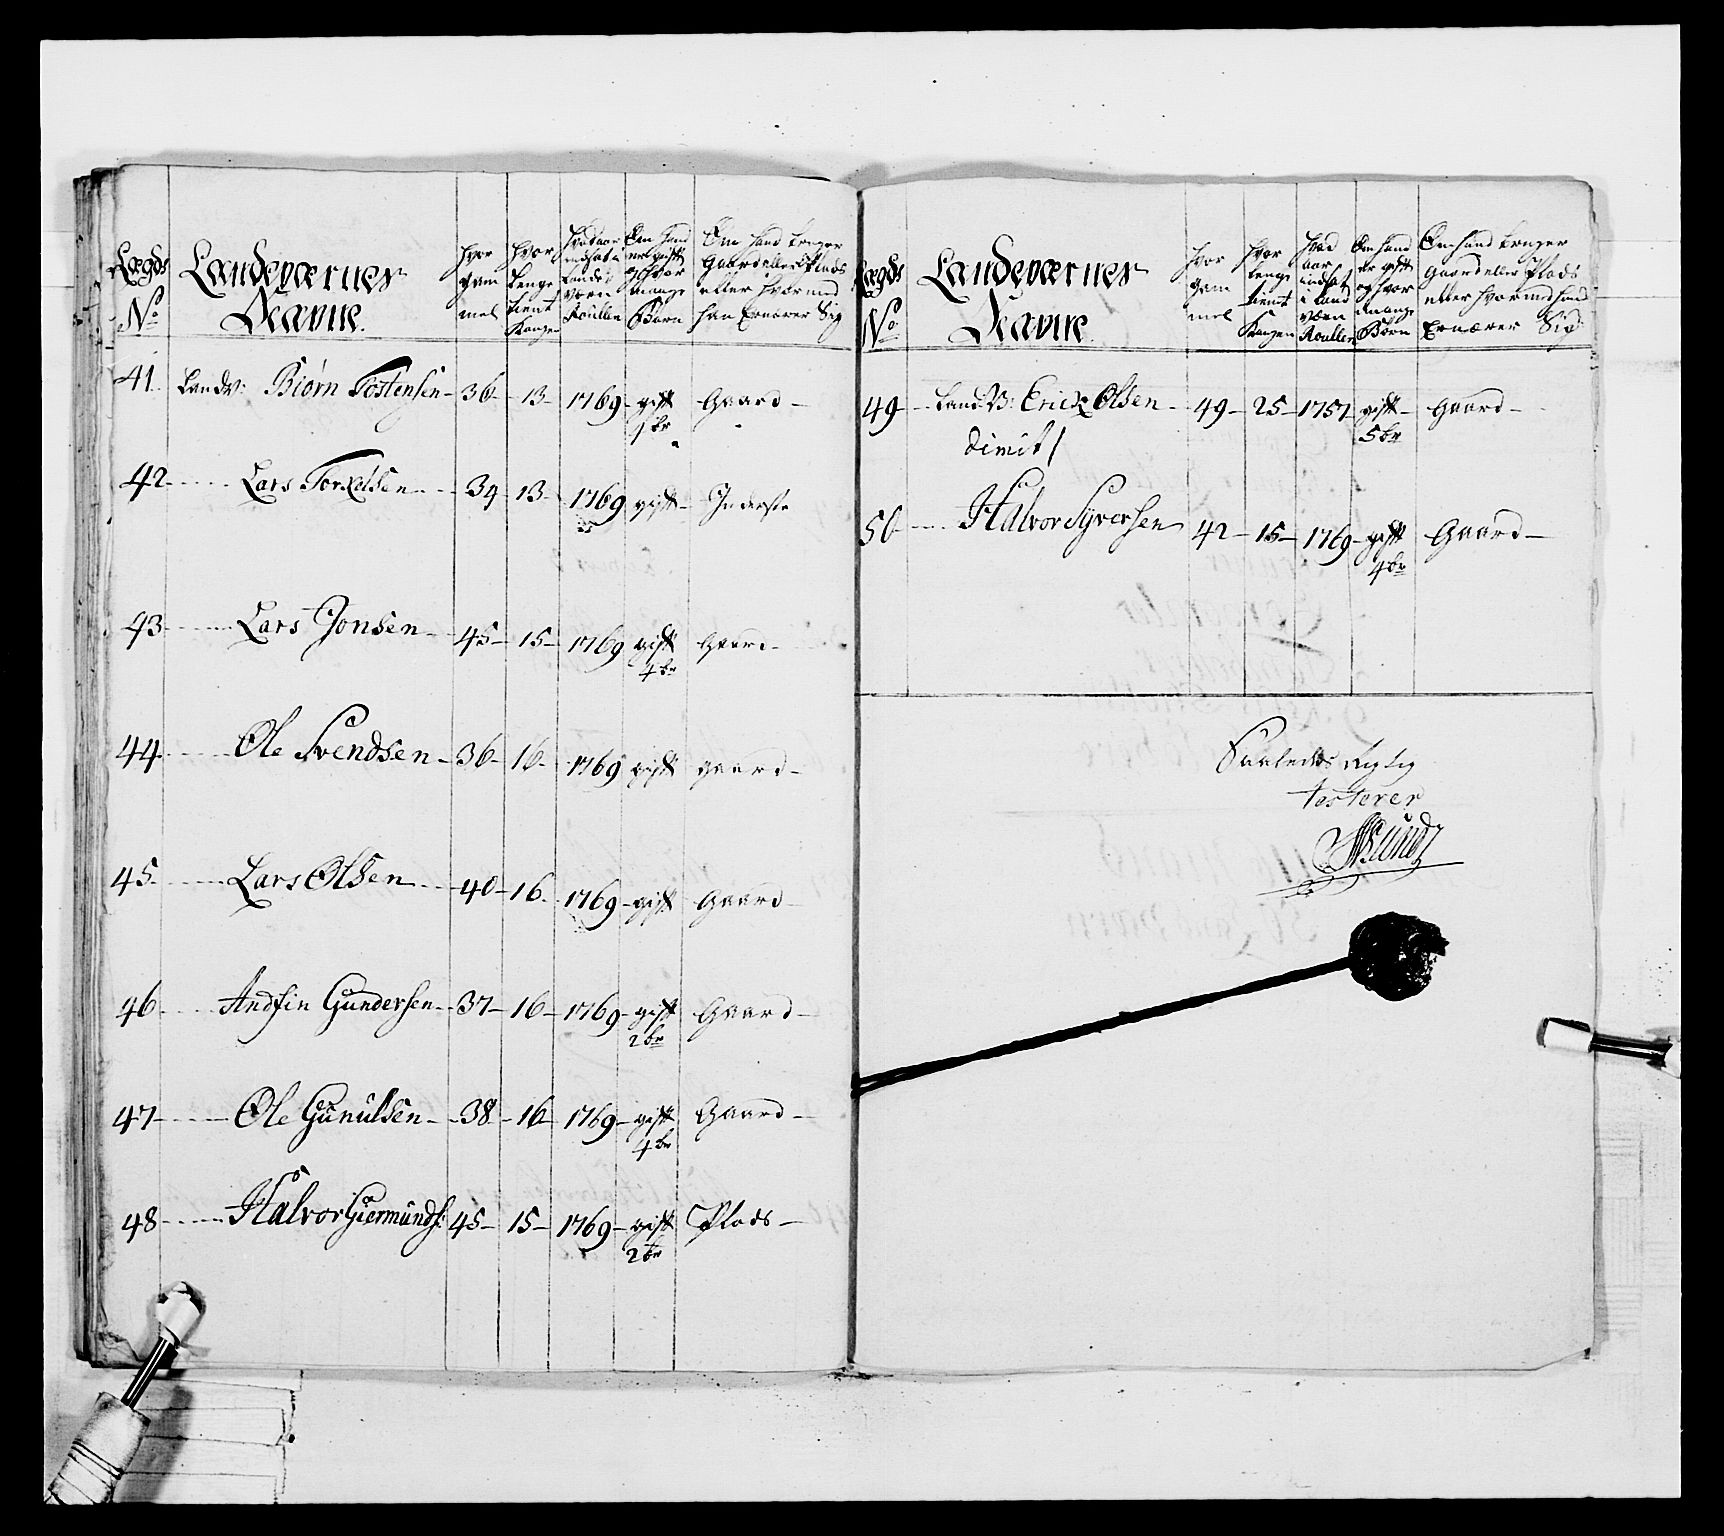 Lægds No
Landeværnes Navne.
hvor gam mel
hvor lenge tient Kongen
hvad aar indsat i Lands værn Roullen
Om hand er gift og hvor mange Børn
Om hand bruger Gaard eller Plads eller hvormed han Ernærer Sig
41. Landv: Biørn Tostensen - 36 - 13 - 1769 - gift 1 br - Gaard -
42 - Lars Torkelsen - 34 - 13 - 1769 - gift - Inderste
43 - Lars Jonsen - 45 - 15 - 1769 gift 4 br - Gaard -
44 - Ole Svendsen - 36 - 16 - 1769 gift - gaard -
45 - Lars Olsen - 40 - 16 - 1769 - gift - Gaard -
46 - Andfin Gundersen - 37 - 16 - 1769 - gift 2 br - Gaard -
47 - Ole Gunulsen - 38 - 16 - 1769 - gift 4 br - Gaard -
48 - Halvor Giermunds: 45 - 15 - 1769 - gift 2 br - Plads -
Lægds No
Landeværnes Navne.
hvor gam mel
hvor lenge tient Kongen
hvad aar indsat i Land værn Roullen
Om hand er gift og hvor mange Børn
Om hand bruger Gaard eller Plads eller hvormed hand Ernærer Sig
49 - Land V: Erick Olsen - 49 - 25 - 1757 - gift - 5 br - Gaard -
dimit/
50 - Halvor Syversen 42 - 15 - 1769 - gift 4 br - Gaard -
Saaledes Rigtig
testerer